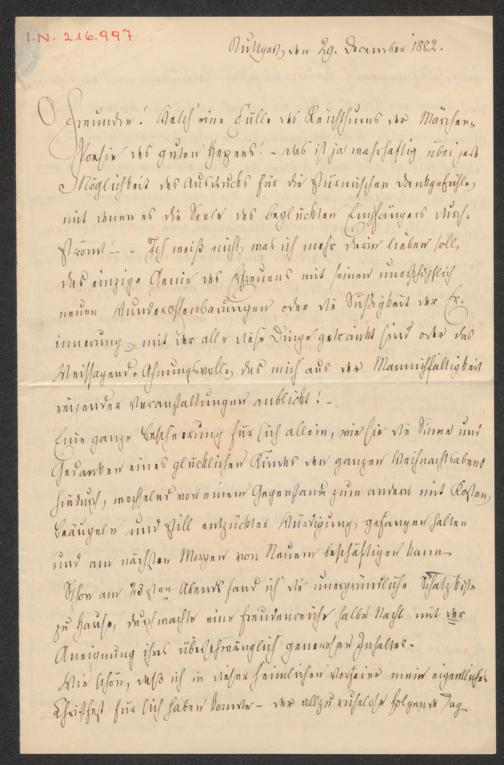 I.N. 216.997
Stuttgart, den 29. December 1882.
O Freundin! Welch' eine Fülle des Reichthums der Märchen-
Poesie des guten Herzens! – das ist ja wahrhaftig über jede
Möglichkeit des Ausdrucks für die stürmischen Dankgefühle,
mit denen es die Seele des beglückten Empfängers durch-
strömt! – – Ich weiß nicht, was ich mehr darin lieben soll,
das einzige Genie des Schenkens mit seinen unerschöpflich
neuen Wunderoffenbarungen oder die Süßigkeit der Er-
innerung, mit der alle diese Dinge getränkt sind oder das
Weissagend-Ahnungsvolle, das mich aus der Mannichfaltigkeit
reizender Veranstaltungen anblickt! –
Eine ganze Bescheerung für sich allein, wie sie die Sinne und
Gedanken eines glücklichen Kindes den ganzen Weihnachtsabend
hindurch, wechselnd von einem Gegenstand zum andern mit Kosten,
Beäugeln und still entzückter Würdigung, gefangen halten
und am nächsten Morgen von Neuem beschäftigen kann.
Schon am 23sten Abends fand ich die unergründliche Schatzkiste
zu Hause, durchwachte eine freudenreiche halbe Nacht mit der
Aneignung ihres überschwänglich generosen Inhaltes.
Wie schön, daß ich in dieser heimlichen Vorfeier mein eigentliches
Christfest für sich haben konnte – der allzu ruhelose folgende Tag